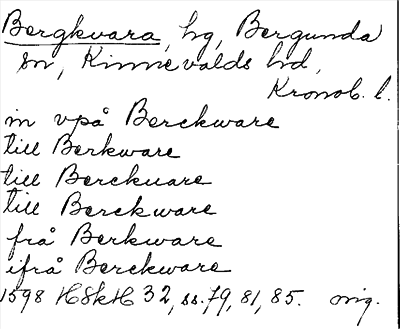 Bergkvara, hg, Bergunda
sn, Kinnevalds hd,
Kronob. l.
in vpå Berckware
till Berkware
till Berckuare
till Berckware
frå Berkware
ifrå Berckware
1598 HSkH 32, ss. 79, 81, 85. orig.